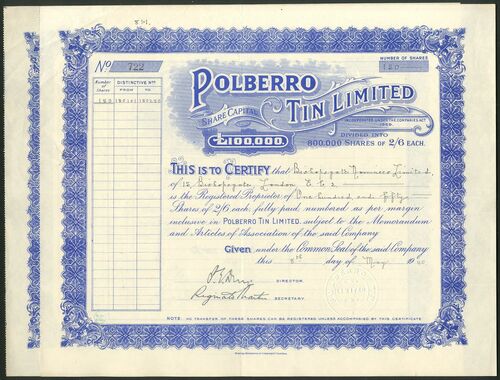 No 722
NUMBER OF SHARES
150
Number of Shares
DISTINCTIVE Nos
FROM
TO
150
POLBERRO
TIN LIMITED
INCORPORATED UNDER THE COMPANIES ACT
SHARE CAPITAL
£100,000
DIVIDED INTO
800,000 SHARES OF 2/6 EACH.
THIS IS TO CERTIFY that Bishopsgate Nominees Limited,
of 15, Bishopsgate, London, E.C.2.
is the Registered Proprietor of One hundred and fifty
Shares of 2/6 each, fully paid, numbered as per margin
inclusive in POLBERRO TIN LIMITED, subject to the Memorandum
and Articles of Association of the said Company
Given under the Common Seal of the said Company
this 8th day of May 19
DIRECTOR.
SECRETARY.
NOTE. NO TRANSFER OF THESE SHARES CAN BE REGISTERED UNLESS ACCOMPANIED BY THIS CERTIFICATE